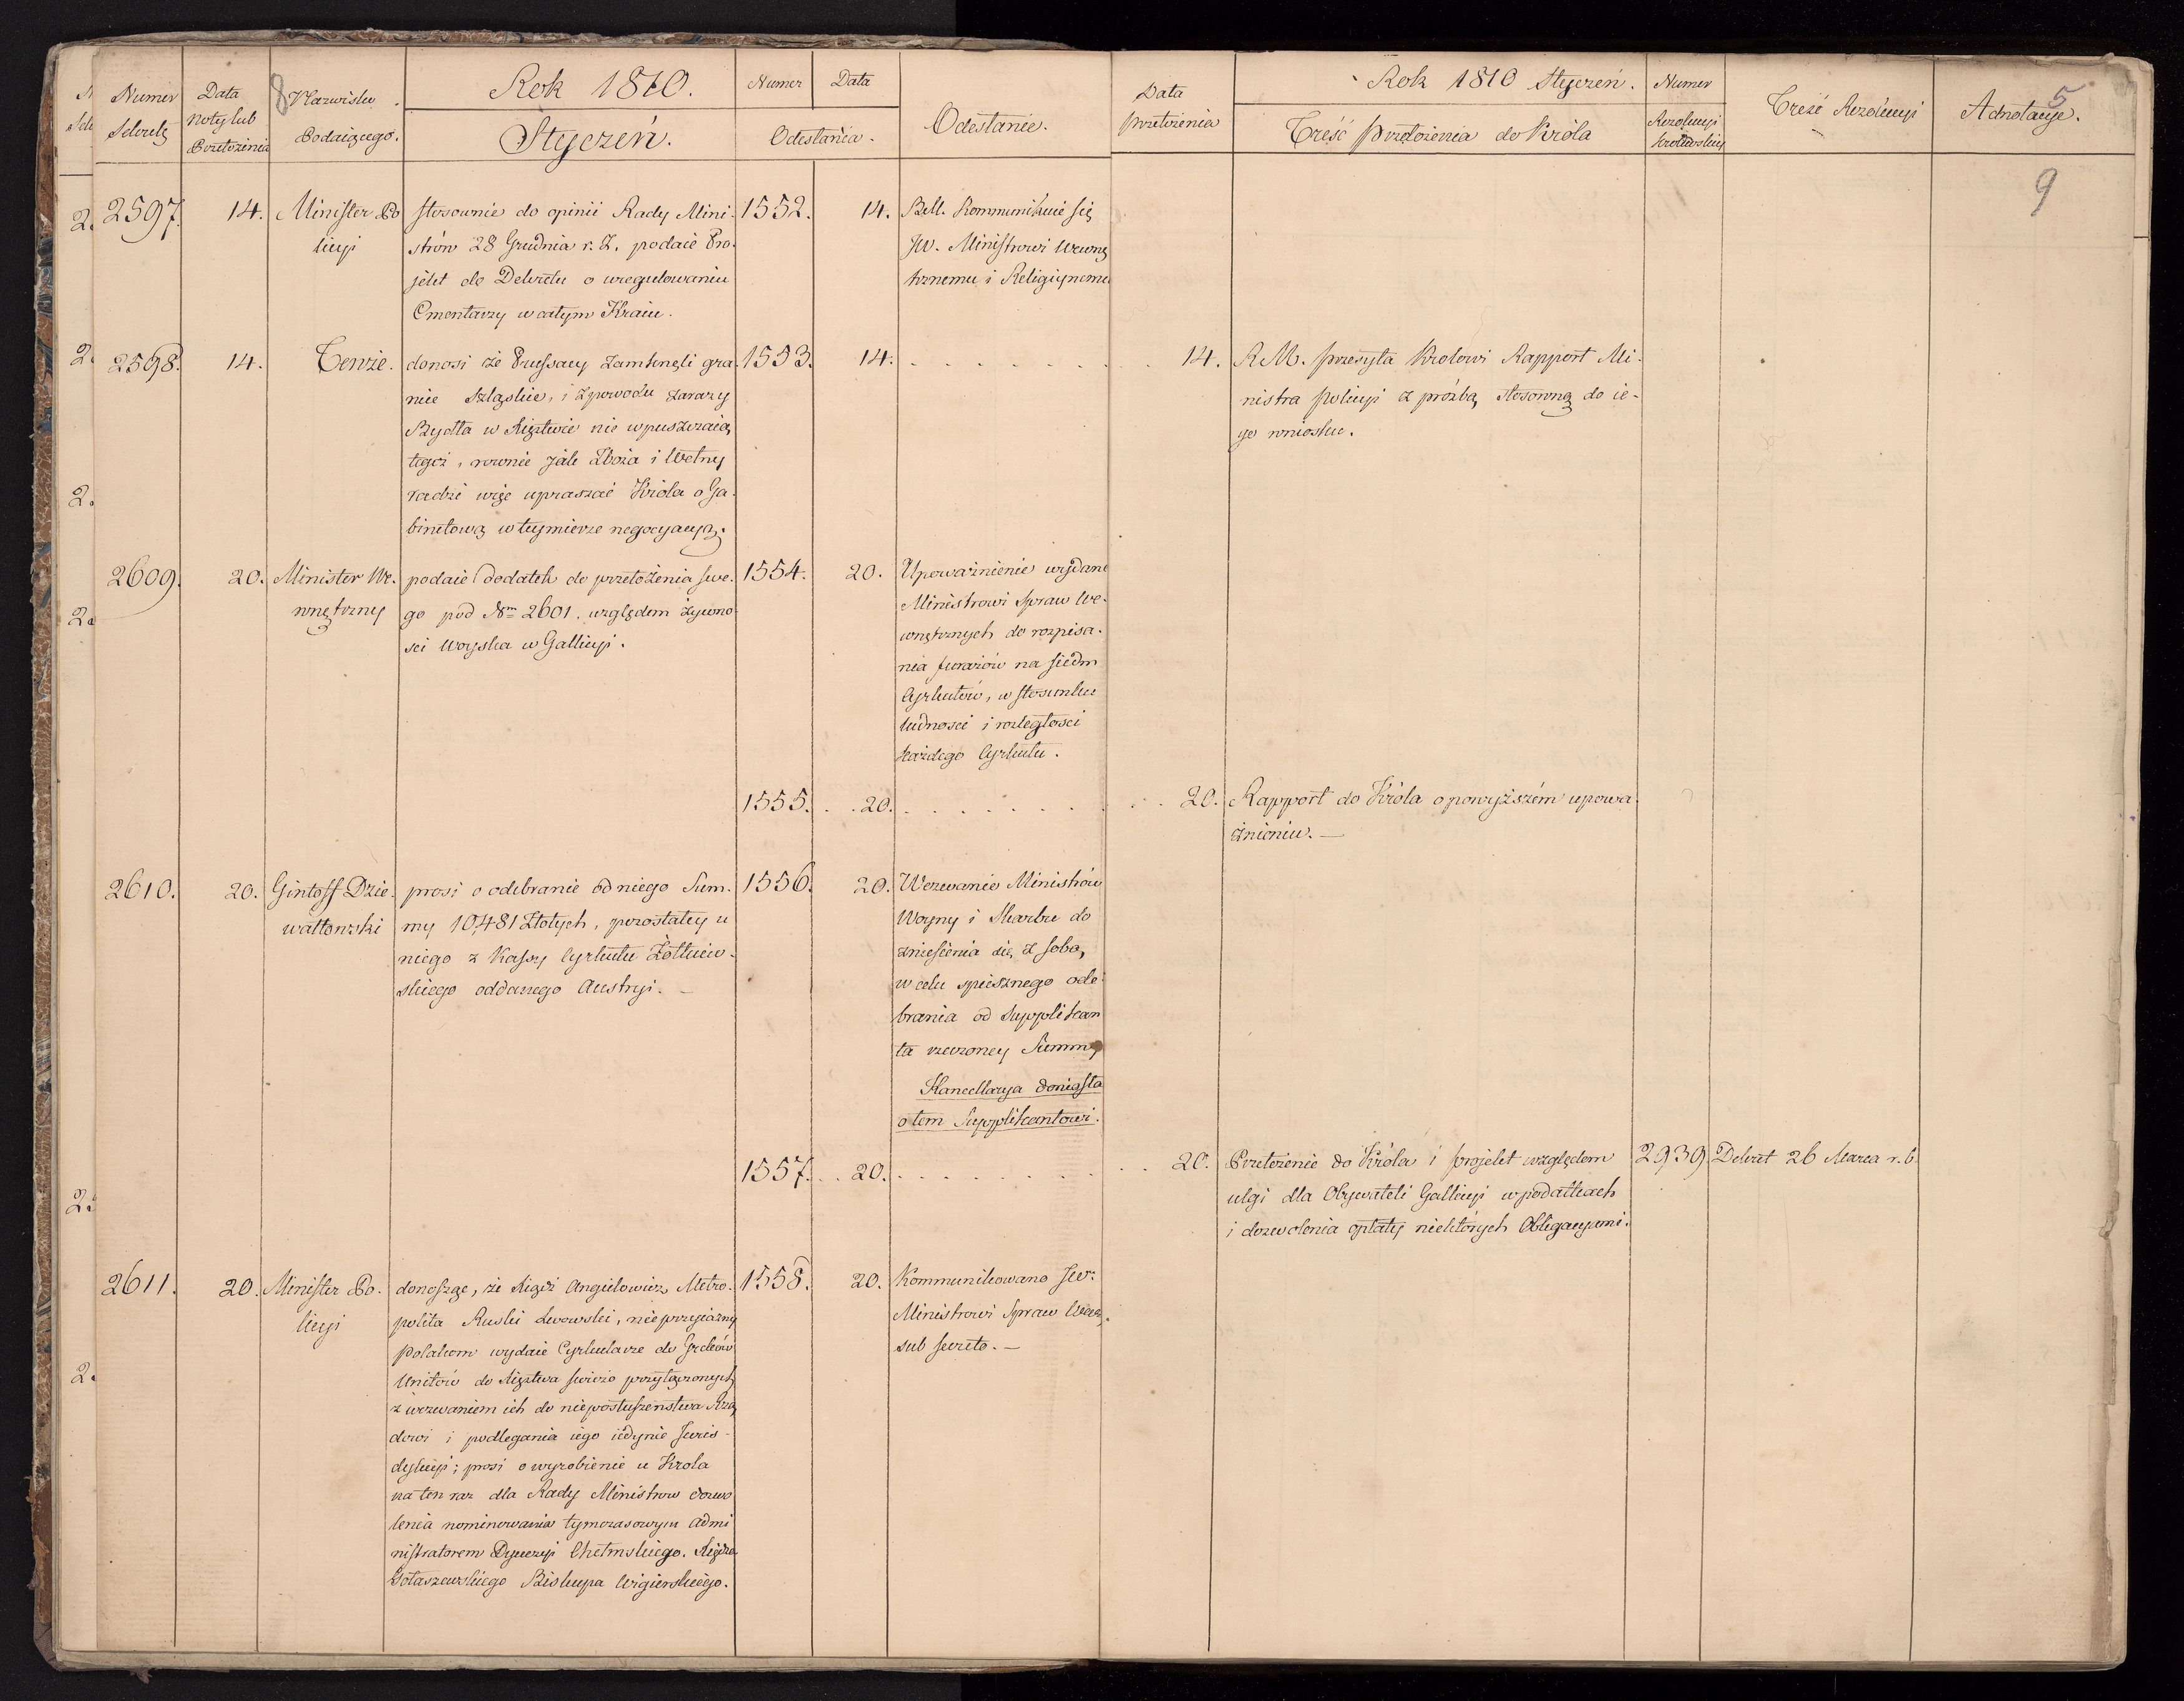 8
5
9
Numer
Sekretz
Data
Noty lub
Przełożenia
Nazwisko
Podaiącego.
Rok 1810.
Styczeń.
Numer
Data
Odesłania.
Odesłanie.
Data
przełożenia
Rok 1810 Styczeń.
Treść przełożenia do Króla
Numer
Rezolucyi
Królewskiey
Treść Rezolucyi
Adnotacye.
2597.
14.
Minister Po
licyi
stosownie do opinii Rady Mini-
strów 28 Grudnia r. z. podaie Pro-
jekt do Dekretu o uregulowaniu
Cmentarzy w całym Kraiu.
1552.
14.
Bell. Kommunikuie się
JW. Ministrowi Wewnę
trznemu i Religiynemu
2598.
14.
Tenże.
donosi że Prussacy zamknęli gra-
nice Szląskie, i z powodu zarazy
Bydła w Xięztwie nie wpuszczaią
tegoż, rownie jak Zboża i Wełny
radzi więc upraszać Króla o Ga-
binetową w tey mierze negocyacyą.
1553.
14.
14.
R M. przesyła Krolowi Rapport Mi-
nistra Policyi z prośbą stosowną do ie-
go wniosku.
2609.
20.
Minister We-
wnętrzny
podaie dodatek do przełożenia swe-
go pod Nm 2601. względem żywno-
sci Woyska w Gallicyi.
1554.
20.
Upoważnienie wydane
Ministrowi Spraw We-
wnętrznych do rozpisa-
nia furażów na siedm
Cyrkułów, w stosunku
ludności i rozległosci
każdego Cyrkułu.
1555.
20.
20.
Rapport do Króla o powyższém upowa-
żnieniu. —
2610.
20.
Gintoff Dzie-
wałtowski
prosi o odebranie od niego Sum-
my 10,481 Złotych, pozostałey u
niego z Kassy Cyrkułu Żółkiew-
skiego oddanego Austryi. —
1556.
20.
Wezwanie Ministrów
Woyny i Skarbu do
zniesienia się z sobą,
w celu spiesznego ode-
brania od Supplikan
ta rzeczoney Summy
Kancellarya doniosła
o tem Supplikantowi.
1557.
20.
20.
Przełożenie do Króla i projekt względem
ulgi dla Obywateli Gallicyi w podatkach
i dozwolenia opłaty niektórych Obligacyami.
2939
Dekret 26 Marca r. b.
2611.
20.
Minister Po-
licyi
donosząc, że Xiądz Angielowicz Metro-
polita Ruski Lwowski, nieprzyiazny
Polakom wydaie Cyrkularze do Greków
Unitów do Xięztwa świeżo przyłączonych
z wezwaniem ich do nieposłuszeństwa Rzą
dowi i podlegania iego iedynie Juris-
dykcyi; prosi o wyrobienie u Krola
na ten raz dla Rady Ministrow dozwo
lenia nominowania tymczasowym Admi
nistratorem Dyecezyi Chełmskiego. Xiędza
Gołaszewskiego Biskupa Wigierskiego.
1558.
20.
Kommunikowano JW:
Ministrowi Spraw Wew.
sub secreto. —